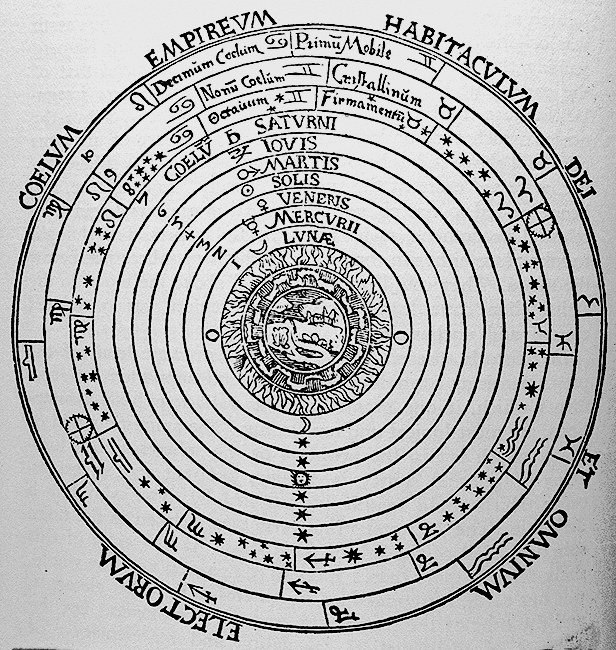 COELVM EMPIREVM HABITACVLVM DEI ET OMNIVM ELECTORVM
Decimũm Coelum Primũ Mobile
Nonũ Coelum Cristallinum
9
Octauum Firmamentũ
8
COELV SATVRNI
7
IOVIS
6
MARTIS
5
SOLIS
4
VENERIS
3
MERCVRII
2
LVNÆ
1